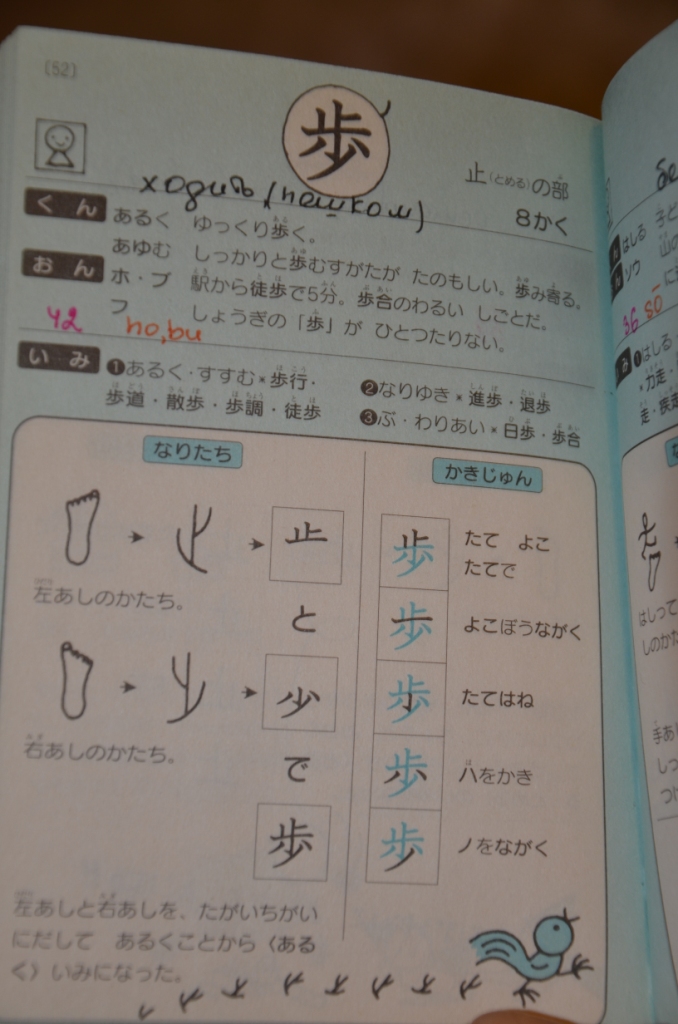 (52)
歩
止(とめる)の部
8かく
ходить (пешком)
くん
あるく ゆっくり歩く。
あゆむ しっかりと歩むすがたが たのもしい。歩み寄る。
おん
ホ・ブ 駅から徒歩で5分。歩合のわるい しごとだ。
フ しょうぎの「歩」が ひとつたりない。
42 ho,bu
いみ
❶あるく・すすむ×歩行・
歩道・散歩・歩調・徒歩
❷なりゆき×進歩・退歩
❸ぶ・わりあい×日歩・歩合
なりたち
止
左あしのかたち。
と
少
右あしのかたち。
で
歩
左あしと右あしを、たがいちがい
にだして あるくことから〈ある
く〉いみになった。
かきじゅん
歩 たて よこ
たてで
歩 よこぼうながく
歩 たてはね
歩 ハをかき
歩 ノをながく
はしる
ソウ
36 sō
❶はしる
×力走・
走・疾走
はしって
しのかた
手あし
しっ